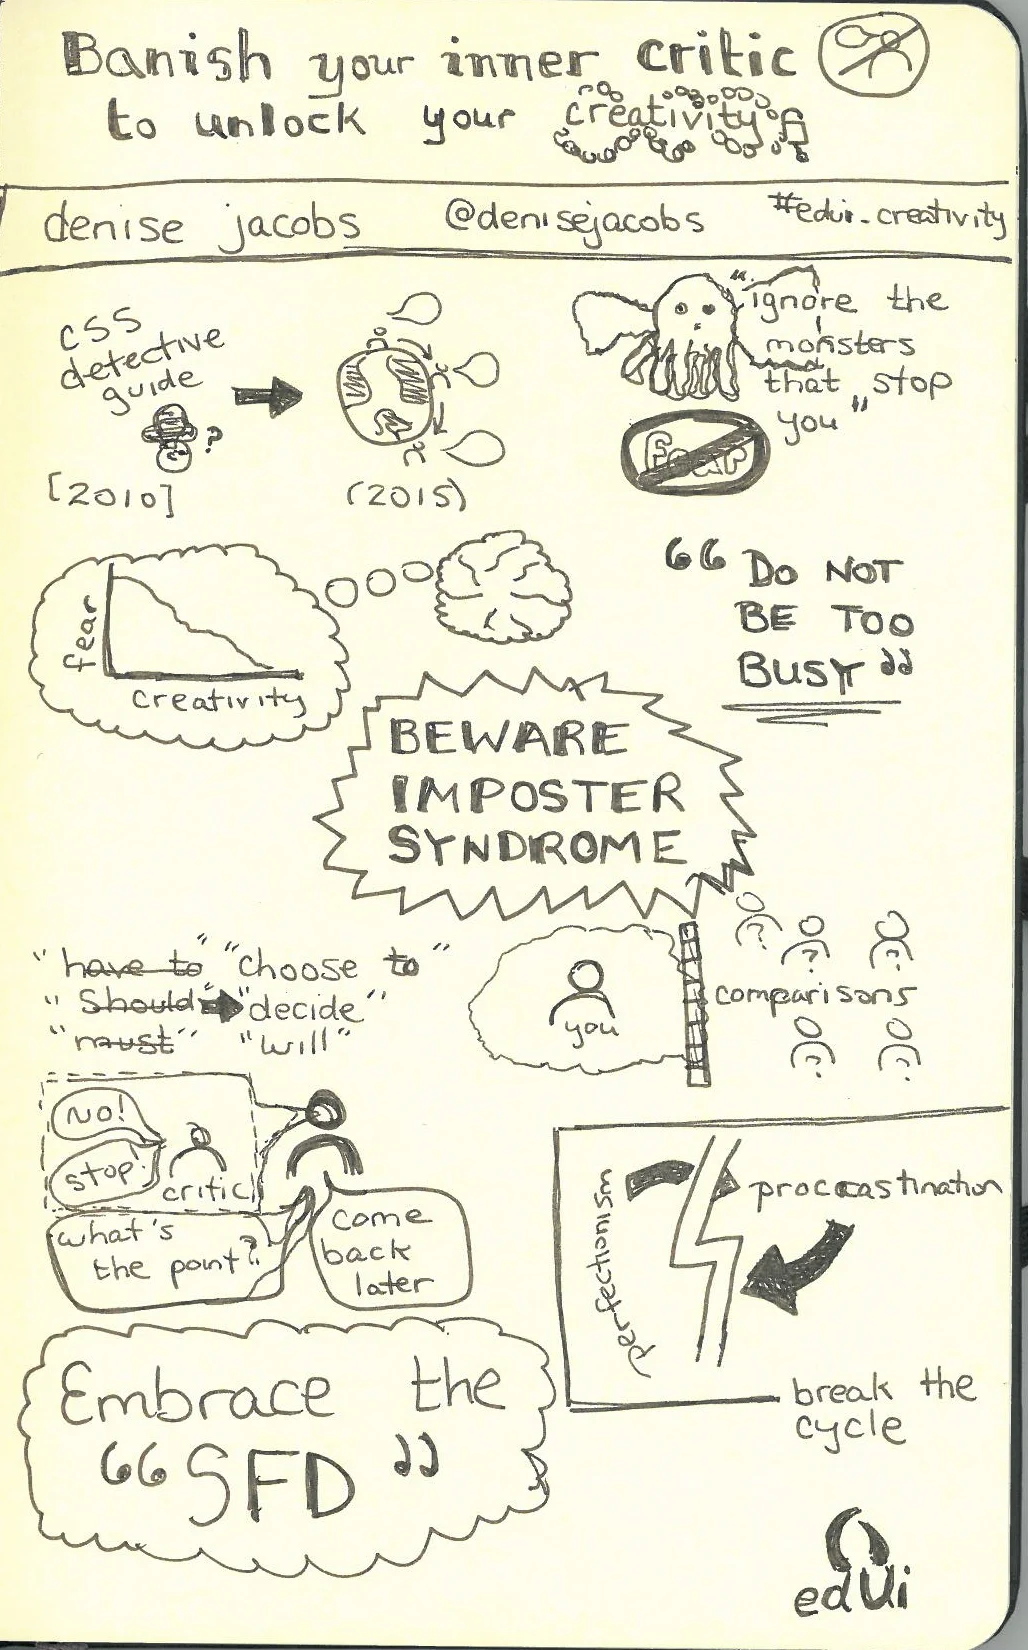 Banish your inner critic
to unlock your creativity
denise jacobs @denisejacobs #edui-creativity
CSS
detective
guide
?
[2010]
(2015)
"ignore the
monsters
that stop
you"
fear
fear
creativity
"DO NOT
BE TOO
BUSY"
BEWARE
IMPOSTER
SYNDROME
"have to" "choose to"
"should" "decide"
"must" "will"
you
comparisons
? ? ? ? ?
NO!
stop!
critic
what's
the point?
come
back
later
perfectionism
proccastination
break the
cycle
Embrace the
"SFD"
edUi